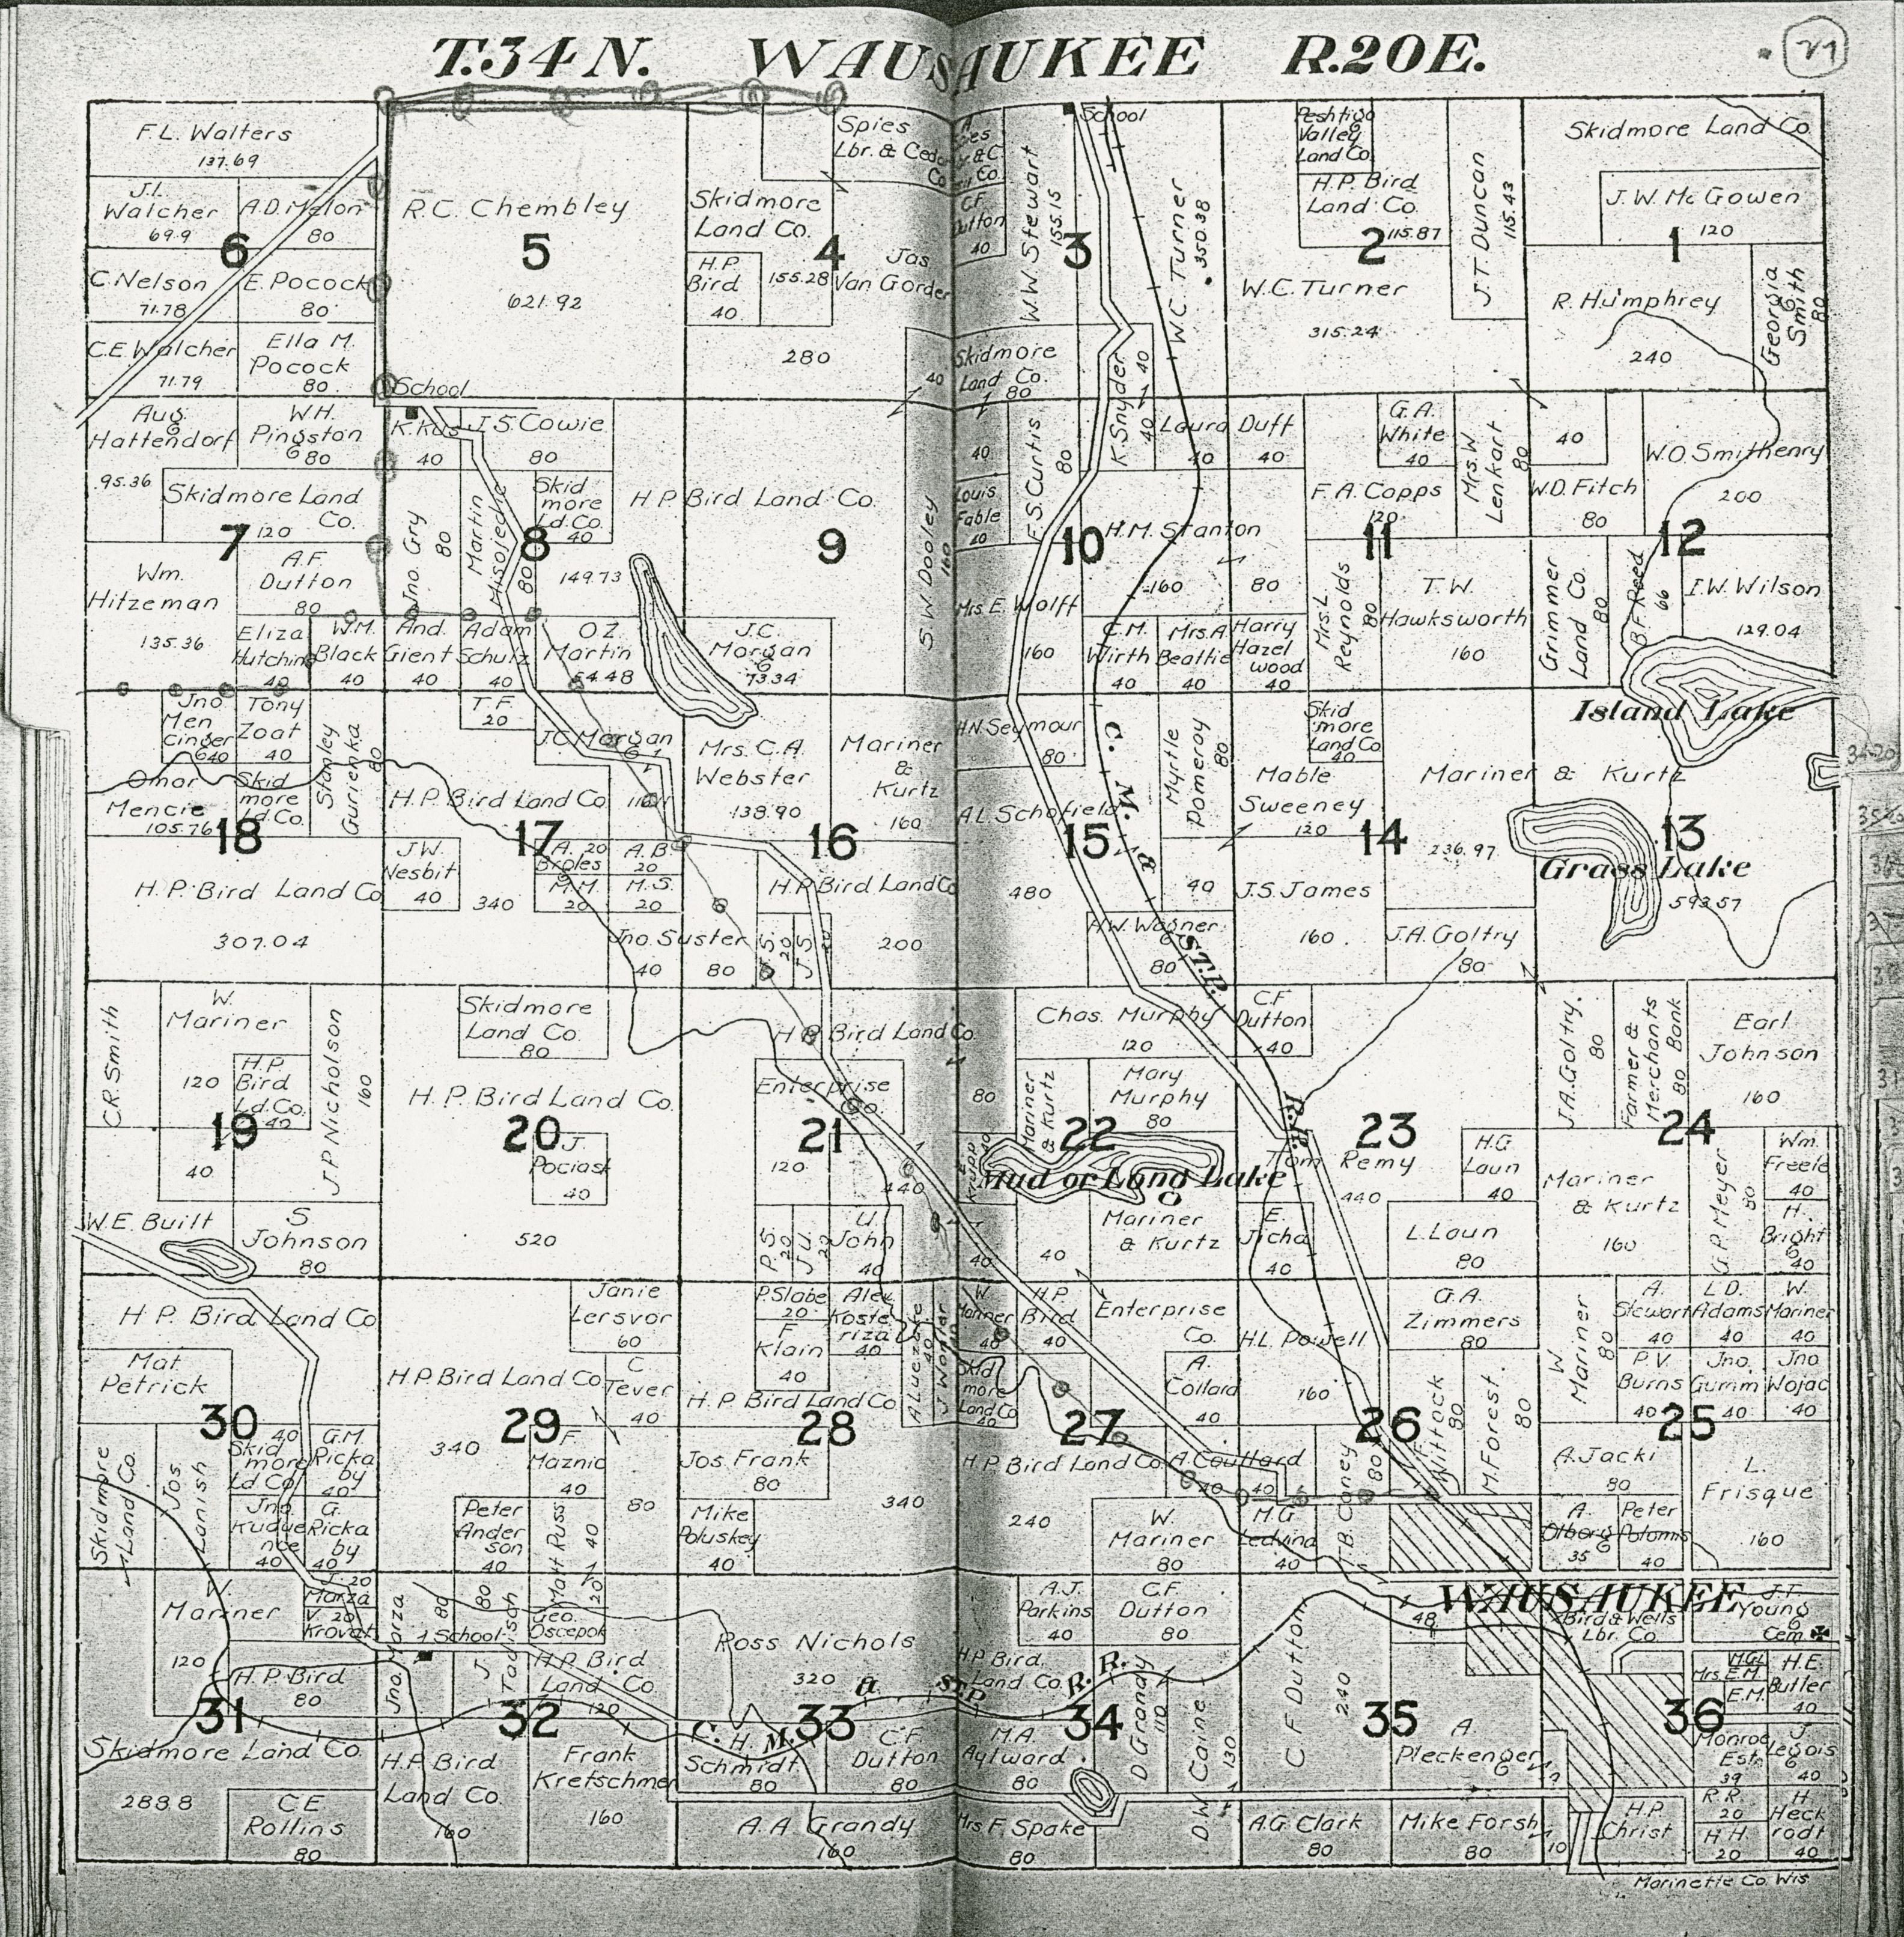 T.34 N. WAUSAUKEE R.20E.
21
F.L. Walters
137.69
J.L.
Walcher
69.9
A.D. Melon
80
6
C. Nelson
71.78
E. Pocock
80
C.E. Walcher
71.79
Ella M.
Pocock
80
R.C. Chembley
5
621.92
School
Spies
Lbr. & Cedar
Co
Skidmore
Land Co.
4
H.P.
Bird
40
155.28
Jas
Van Gorder
280
40
C.F.
Dutton
40
W.W. Stewart
155.15
3
School
W.C. Turner
350.38
Skidmore
Land Co.
80
K. Snyder
40
40
Peshtigo
Valley
Land Co.
H.P. Bird
Land Co.
115.87
2
W.C. Turner
315.24
J.T. Duncan
115.43
Skidmore Land Co.
J.W. McGowen
120
1
R. Humphrey
240
Georgia
Smith
80
Aug.
Hattendorf
95.36
W.H.
Pingston
80
Skidmore Land
Co.
120
7
A.F.
Dutton
80
Wm.
Hitzeman
135.36
Eliza
Hutchins
40
W.M.
Black
40
K. Kus
40
J.S. Cowie
80
Jno. Gry
80
Martin
Misolede
80
8
Skid
more
Ld. Co.
40
149.73
And.
Gient
40
Adam
Schutz
40
O.Z.
Martin
54.48
H.P. Bird Land Co.
9
J.C.
Morgan
73.34
S.W. Dooley
160
40
Louis
Fable
40
F.S. Curtis
80
10
Mrs. E. Wolff
160
Laura Duff
40
40
H.M. Stanton
160
80
C.M.
Wirth
40
Mrs. A
Beattie
40
Harry
Hazel
wood
40
G.A.
White
40
Mrs. W.
Lenkart
80
F.A. Copps
120
11
Mrs. L.
Reynolds
80
T.W.
Hawksworth
160
40
W.D. Fitch
80
W.O. Smithenry
200
12
Grimmer
Land Co.
80
B.F. Reed
66
I.W. Wilson
129.04
Island Lake
Jno
Men
Cinger
40
Tony
Zoat
40
Omar
Mencie
105.76
Skid
more
Ld. Co.
Stanley
Gurienka
80
18
H.P. Bird Land Co
307.04
T.F.
20
J.C. Morgan
H.P. Bird Land Co
17
J.W.
Nesbit
40
340
A. 20
Broles
A.B
20
M.M.
20
M.S.
20
Jno. Suster
40
80
Mrs. C.A.
Webster
138.90
Mariner
&
Kurtz
160
16
H.P. Bird Land Co
J.S.
20
J.S.
20
200
H.N. Seymour
80
A.L. Schofield
15
480
Myrtle
Pomeroy
80
40
H.W. Wagner
80
C. M. & ST.P. R.R.
Skid
more
Land Co
40
Mable
Sweeney
120
14
J.S. James
160
Mariner & Kurtz
236.97
J.A. Goltry
80
13
Grass Lake
593.57
C.R. Smith
W.
Mariner
120
H.P.
Bird
Ld. Co.
40
J.P. Nicholson
160
19
40
W.E. Built
S.
Johnson
80
Skidmore
Land Co.
80
H.P. Bird Land Co.
20
J.
Pociask
40
520
H P Bird Land Co.
Enterprise
Co.
21
120
440
P.S.
20
J.U.
20
U.
John
40
Chas. Murphy
120
80
Mariner
& Kurtz
Mary
Murphy
80
22
E.
Krupp
40
Mud or Long Lake
40
40
Mariner
& Kurtz
C.F
Dutton
40
23
Tom Remy
440
E.
Jicha
40
H.G.
Laun
40
L. Laun
80
J.A. Goltry.
80
Farmer &
Merchants
Bank
80
Earl
Johnson
160
24
Mariner
& Kurtz
160
G.P. Meyer
80
Wm.
Freele
40
H.
Bright
40
H.P. Bird Land Co
Mat
Petrick
30
40
Skid
more
Ld Co
G.M.
Ricka
by
40
Skidmore
Land Co.
Jos.
Lanish
Jno
40
G.
Ricka
by
40
Janie
Lersvor
60
H.P. Bird Land Co
C
Tever
40
29
340
F.
Maznic
40
80
Peter
Ander
son
40
Matt Russ
40
P. Slabe
20
F
Klain
40
Alex
Koste
riza
40
40
H.P. Bird Land Co
28
Jos. Frank
80
Mike
Poluskey
40
340
W
Mariner
40
H.P.
Bird
40
Enterprise
Co.
Skid
more
Land Co
40
A.
Collard
40
27
H P Bird Land Co
A. Coulfard
40
40
240
W.
Mariner
80
M.G
Ledvina
40
H.L. Powell
160
G.A.
Zimmers
80
26
T.B. Caney
80
Kittock
80
M. Forest.
80
W
Mariner
80
A.
Stewart
40
L.D.
Adams
40
W.
Mariner
40
P.V.
Burns
40
Jno.
Gumm
40
Jno
Wojac
40
25
A. Jacki
80
L.
Frisque
160
A.
Olborg
35
Peter
Polomis
40
WAUSAUKEE
W.
Mariner
120
J. 20
Marza
V. 20
Krovat
H.P. Bird
80
31
Skidmore Land Co.
288.8
C E
Rollins
80
Jno. Marza
80
80
School
J.
Tadisch
Geo.
Oscepok
20
H.P. Bird
Land Co.
120
32
H.P. Bird
Land Co.
160
Frank
Kretschmer
160
Ross Nichols
320
33
C. M. & St.P. R.R.
H.
Schmidt
80
C.F.
Dutton
80
A.A. Grandy
160
A.J.
Parkins
40
C.F.
Dutton
80
H.P Bird
Land Co.
34
M.A.
Aylward
80
D. Grandy
110
D.W. Caine
130
Mrs F. Spake
80
C F Dutton
240
48
35
A.
Pleckenger
A.G. Clark
80
Mike Forsh
80
10
Bird & Wells
Lbr. Co.
J.T.
Young
Cem
Mrs. E.M.
E.M.
H.E.
Butler
40
36
Monroe
Est.
39
J.
Legois
40
H.P.
Christ
R.R.
20
H H
20
H
Heck
rodt
40
Marinette Co. Wis